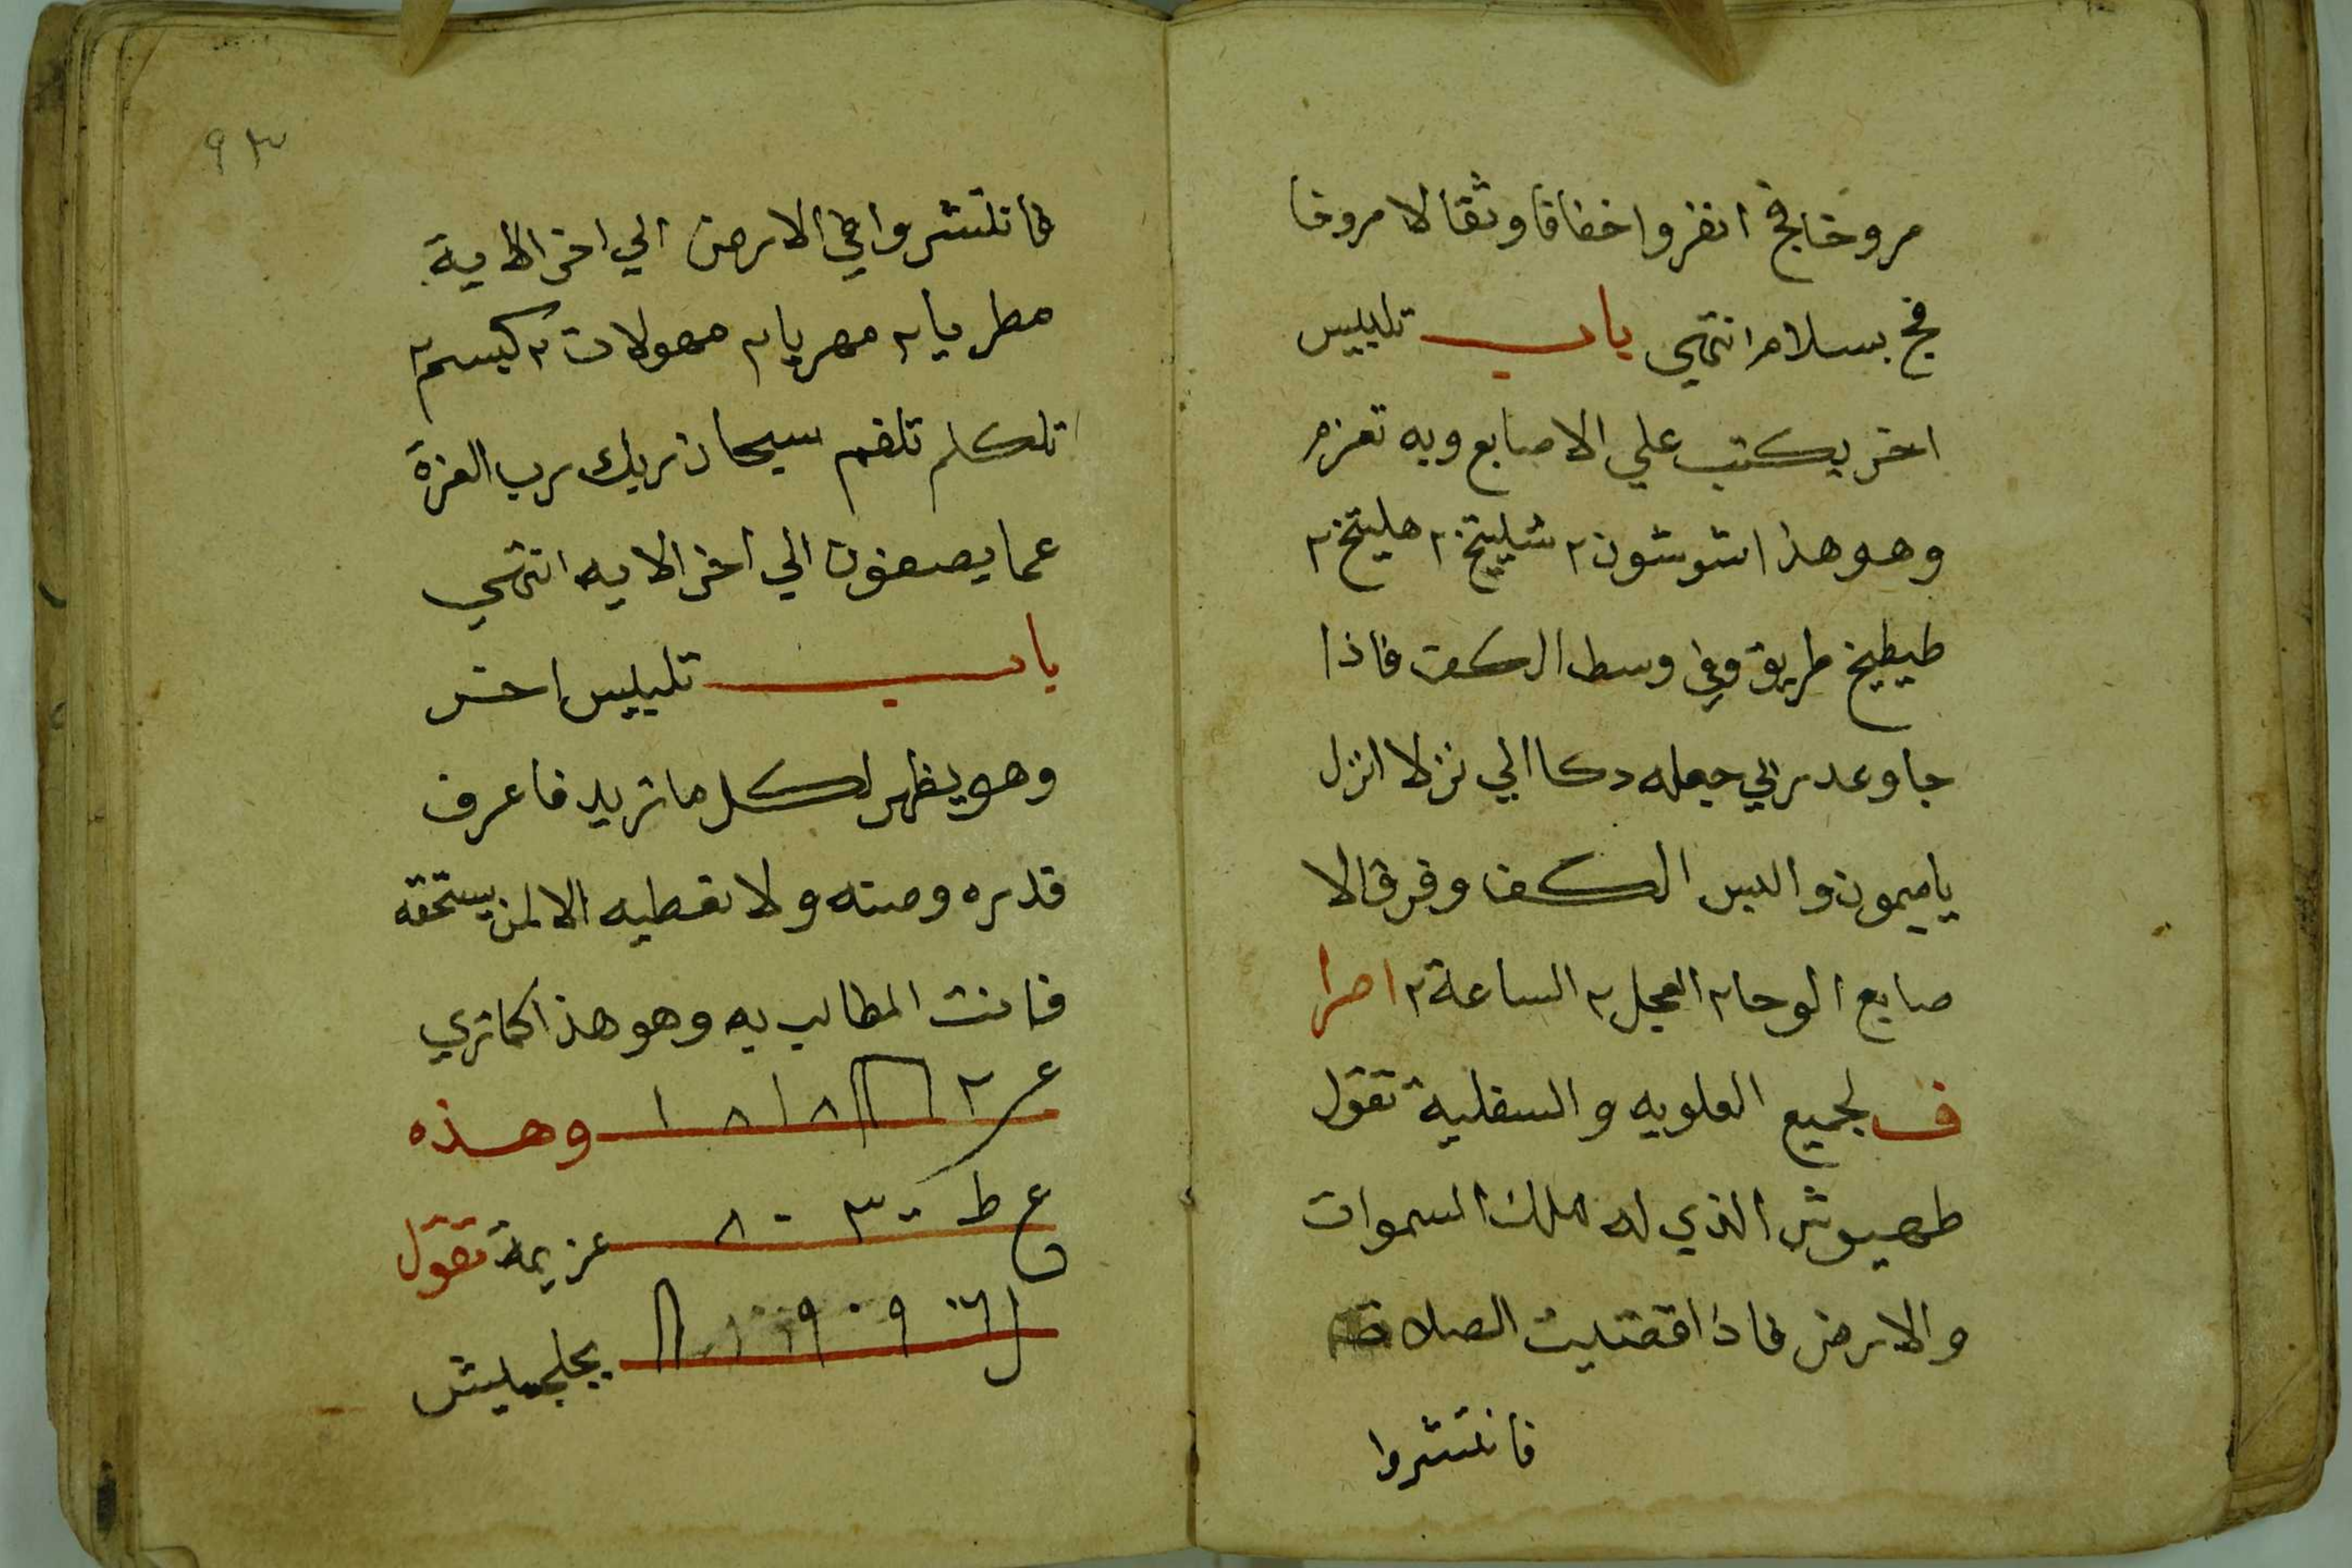 مروخا فج انفروا خفافا وثقالا مروخا
فج بسلام انتهي باب تلبيس
اخر يكتب علي الاصابع وبه تعزم
وهو هذا شوشون ٢ شليتخ ٢ هليتخ ٢
طيطيخ طريق وفي وسط الكف فاذا
جا وعد ربي جعله دكا الي نزلا انزل
يا ميمون والبس الكف وفرق الا
صابع الوحا ٢ العجل ٢ الساعة ٢ اصرا
ف لجميع العلويه والسفلية تقول
طهيوش الذي له ملك السموات
والارض فاذا قضيت الصلاة
فانتشروا
٩٣
فانتشروا في الارض الي اخر الاية
مطريا ٢ مهريا ٢ مهولات ٢ كيسم ٢
تلكلم تلفم سبحان ربك رب العزة
عما يصفون الي اخر الايه انتهي
باب تلبيس اخر
وهو يظهر لكل ما تريد فاعرف
قدره وصنه ولا تعطيه الا لمن يستحقه
فانت المطالب به وهو هذا كما تري
وهذه
ع ط عزيمة تقول
يجلجميليش